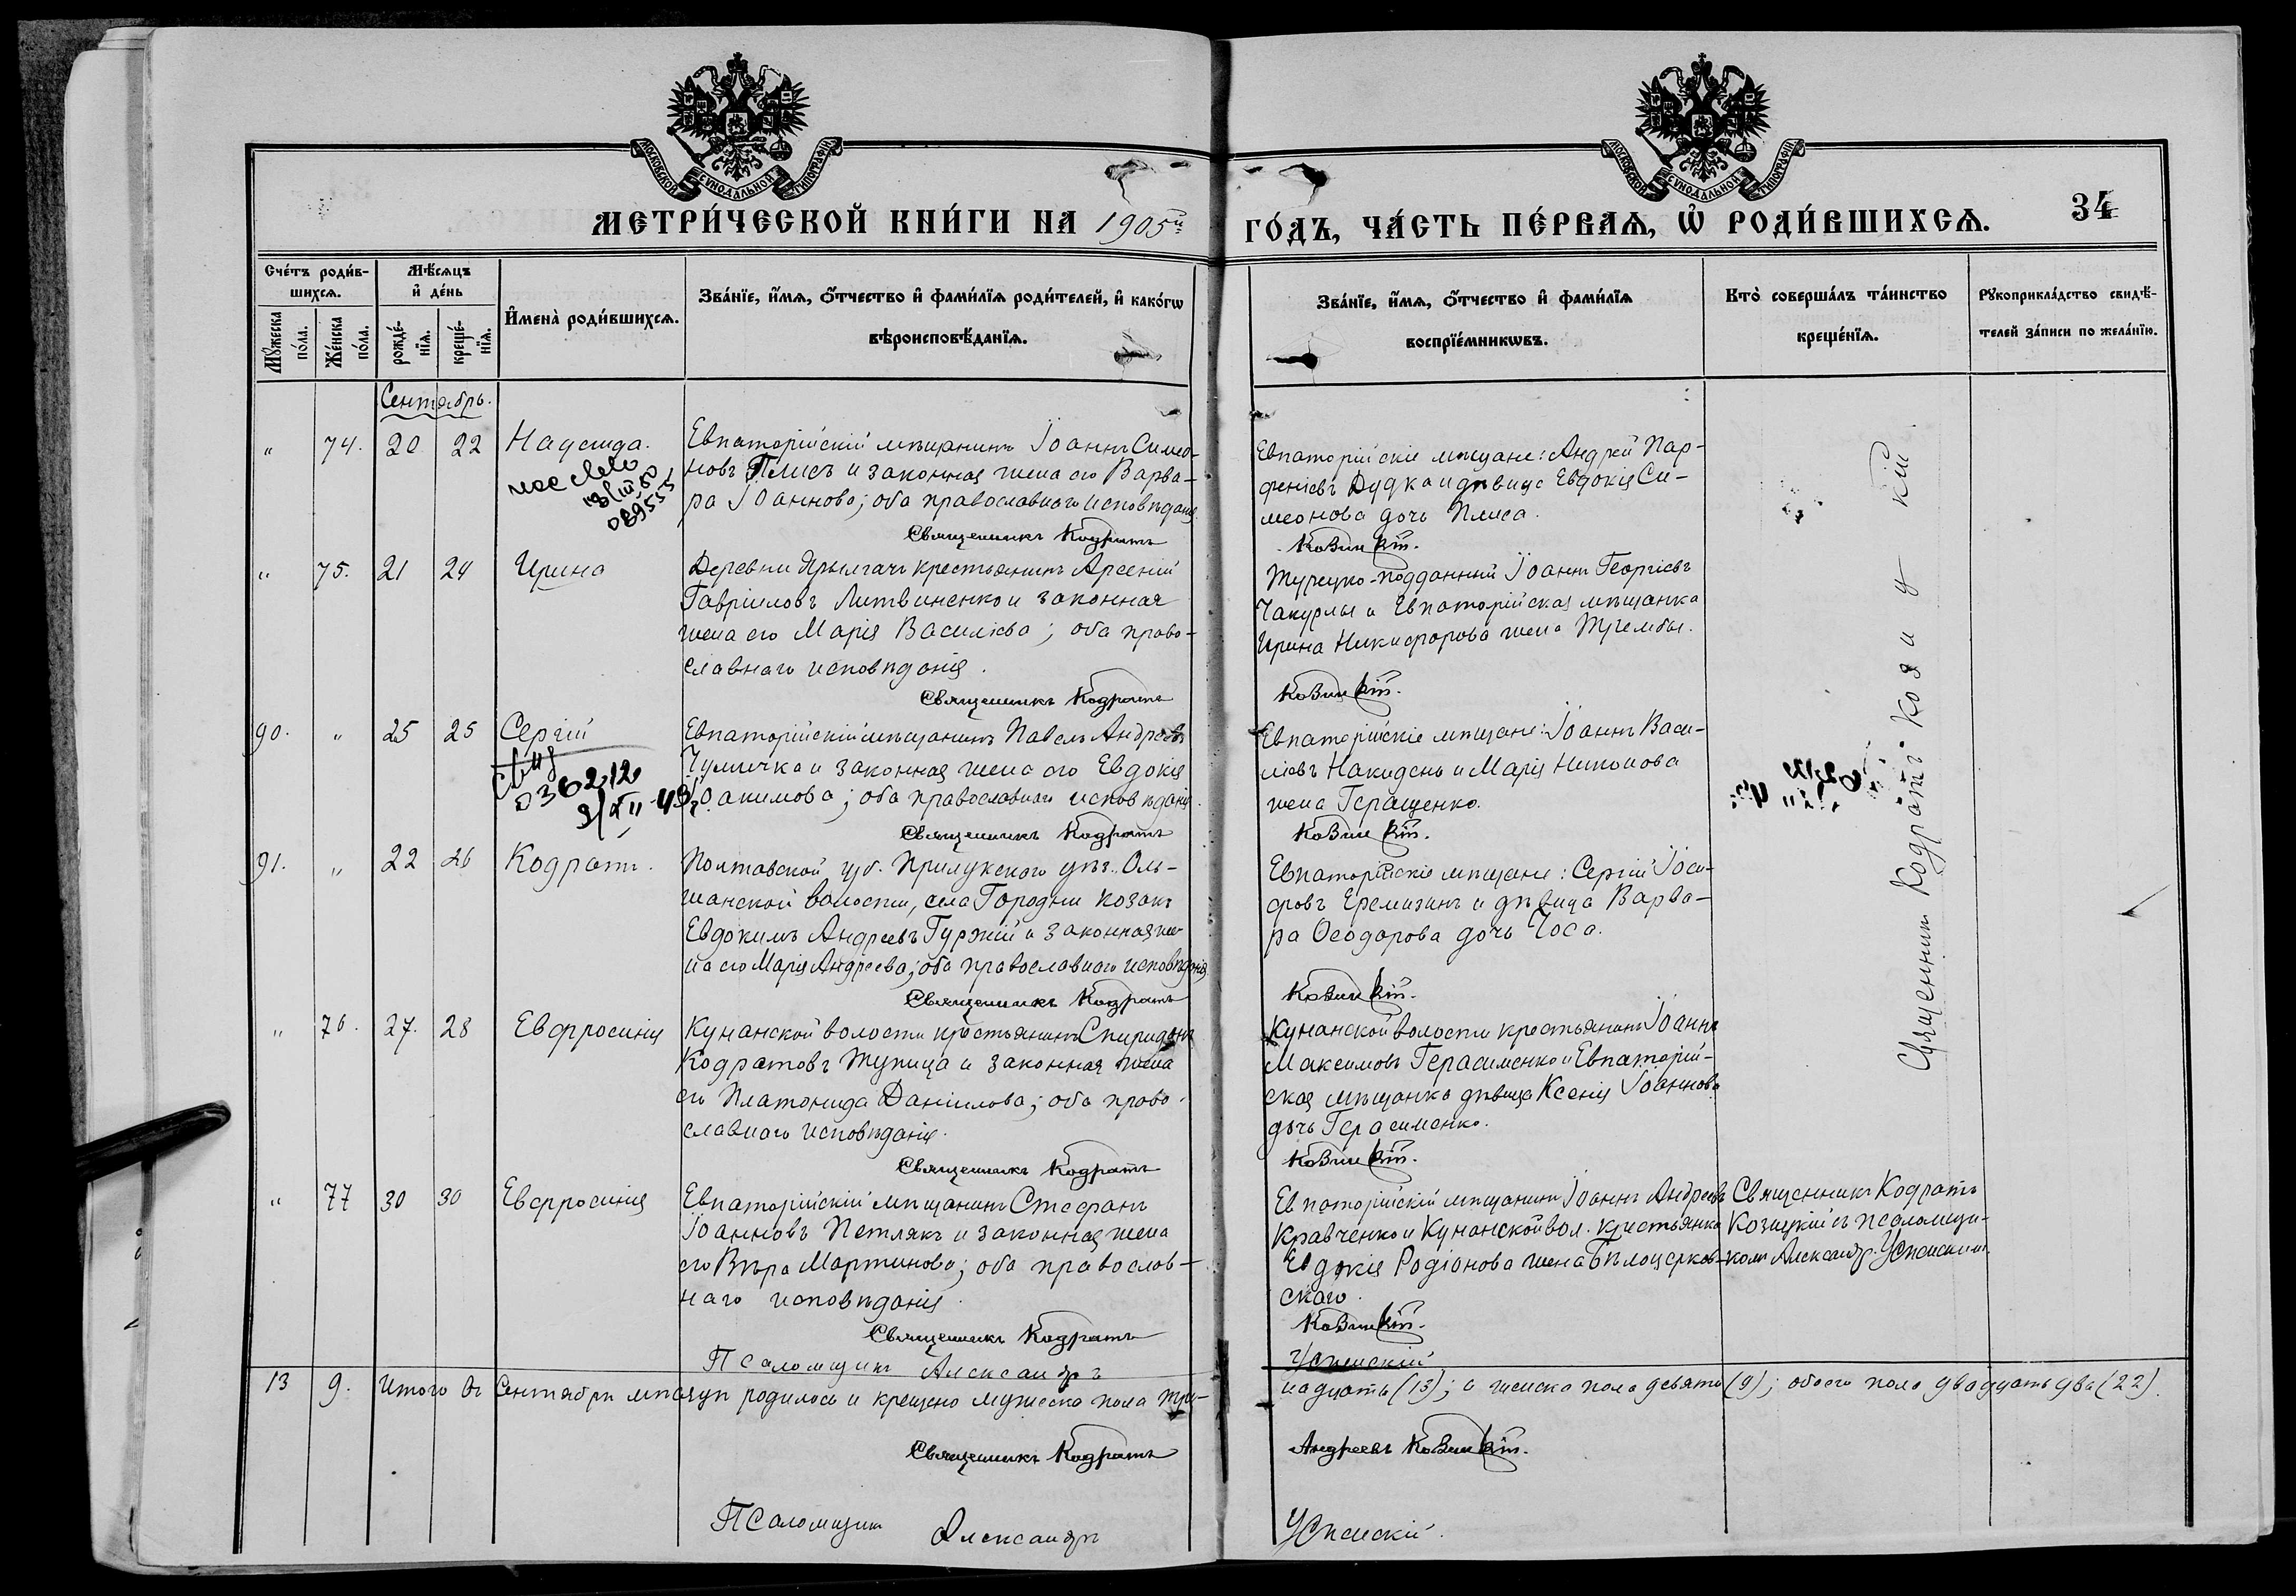 МОСКОВСКОЙ СѴНОДАЛЬНОЙ ТИПОГРАФІИ
МОСКОВСКОЙ СѴНОДАЛЬНОЙ ТИПОГРАФІИ
МЕТРИ́ЧЕСКОЙ КНИ́ГИ НА 1905й
ГО́ДЪ, ЧА́СТЬ ПЕ́РВАѦ, Ѡ҆ РОДИ́ВШИХСѦ.
34
Сче́тъ роди́в-
шихсѧ.
Мꙋ́жеска по́ла.
Же́нска по́ла.
Мѣ́сѧцъ
и҆ де́нь
рожде́-
нїѧ.
креще́-
нїѧ.
И҆мена̀ роди́вшихсѧ.
Зва́нїе, и҆́мѧ, ѻ҆́тчество и҆ фами́лїѧ роди́телей, и҆ како́гѡ
вѣроисповѣ́данїѧ.
Зва́нїе, и҆́мѧ, ѻ҆́тчество и҆ фами́лїѧ
воспрїе́мникѡвъ.
Кто̀ соверша́лъ та́инство
креще́нїѧ.
Рꙋкоприкла́дство свидѣ́-
телей за́писи по жела́нїю.
Сентябрь.
" 74. 20 22 Надежда.
18/III-50
089555
Евпаторійскій мѣщанинъ Іоаннъ Симео-
новъ Плисъ и законная жена его Варва-
ра Іоаннова; оба православнаго исповѣданія.
Священникъ Кодратъ
Евпаторійскіе мѣщане: Андрей Пар-
феніевъ Дудка и дѣвица Евдокія Си-
меонова дочь Плиса.
Козицкій.
" 75. 21 24 Ирина
Деревни Ярылгачъ крестьянинъ Арсеній
Гавріиловъ Литвиненко и законная
жена его Марія Василіева; оба право-
славнаго исповѣданія.
Священникъ Кодратъ
Турецко-подданный Іоаннъ Георгіевъ
Чакурлы и Евпаторійская мѣщанка
Ирина Никифорова жена Трембы.
Козицкій.
90. " 25 25 Сергій
036212
9/XII-49
Евпаторійскій мѣщанинъ Павелъ Андреевъ
Чумичка и законная жена его Евдокія
Іоакимова; оба православнаго исповѣданія.
Священникъ Кодратъ
Евпаторійскіе мѣщане: Іоаннъ Васи-
ліевъ Накидень и Марія Никонова
жена Геращенко.
Козицкій.
91. " 22 26 Кодратъ.
Полтавской губ. Прилукского уѣз. Оль-
шанской волости, села Городни козакъ
Евдокимъ Андреевъ Гуржій и законная же-
на его Марія Андреева; оба православнаго исповѣданія.
Священникъ Кодратъ
Евпаторійскіе мѣщане: Сергій Іоси-
фовъ Еремизинъ и дѣвица Варва-
ра Ѳеодорова дочь Чоса.
Козицкій.
" 76. 27. 28 Евфросинія
Кунанской волости крестьянинъ Спиридонъ
Кодратовъ Тупица и законная жена
его Платонида Даніилова; оба право-
славнаго исповѣданія.
Священникъ Кодратъ
Кунанской волости крестьянинъ Іоаннъ
Максимовъ Герасименко и Евпаторій-
ская мѣщанка дѣвица Ксенія Іоаннова
дочь Герасименко.
Козицкій.
Священникъ Кодратъ Козицкій.
" 77 30 30 Евфросинія
Евпаторійскій мѣщанинъ Стефанъ
Іоанновъ Петлякъ и законная жена
его Вѣра Мартинова; оба православ-
наго исповѣданія.
Священникъ Кодратъ
Псаломщикъ Александръ
Евпаторійскій мѣщанинъ Іоаннъ Андреевъ
Кравченко и Кунанской вол. крестьянка
Евдокія Родіонова жена Бѣлоцерков-
скаго.
Козицкій.
Успенскій
Священникъ Кодратъ
Козицкій съ псаломщи-
комъ Александр. Успенским.
13 9. Итого въ Сентябрѣ мѣсяцѣ родилось и крещено мужеска пола три-
надцать (13); а женска пола девять (9); обоего пола двадцать два (22).
Священникъ Кодратъ
Андреевъ Козицкій.
Псаломщикъ Александръ
Успенскій.